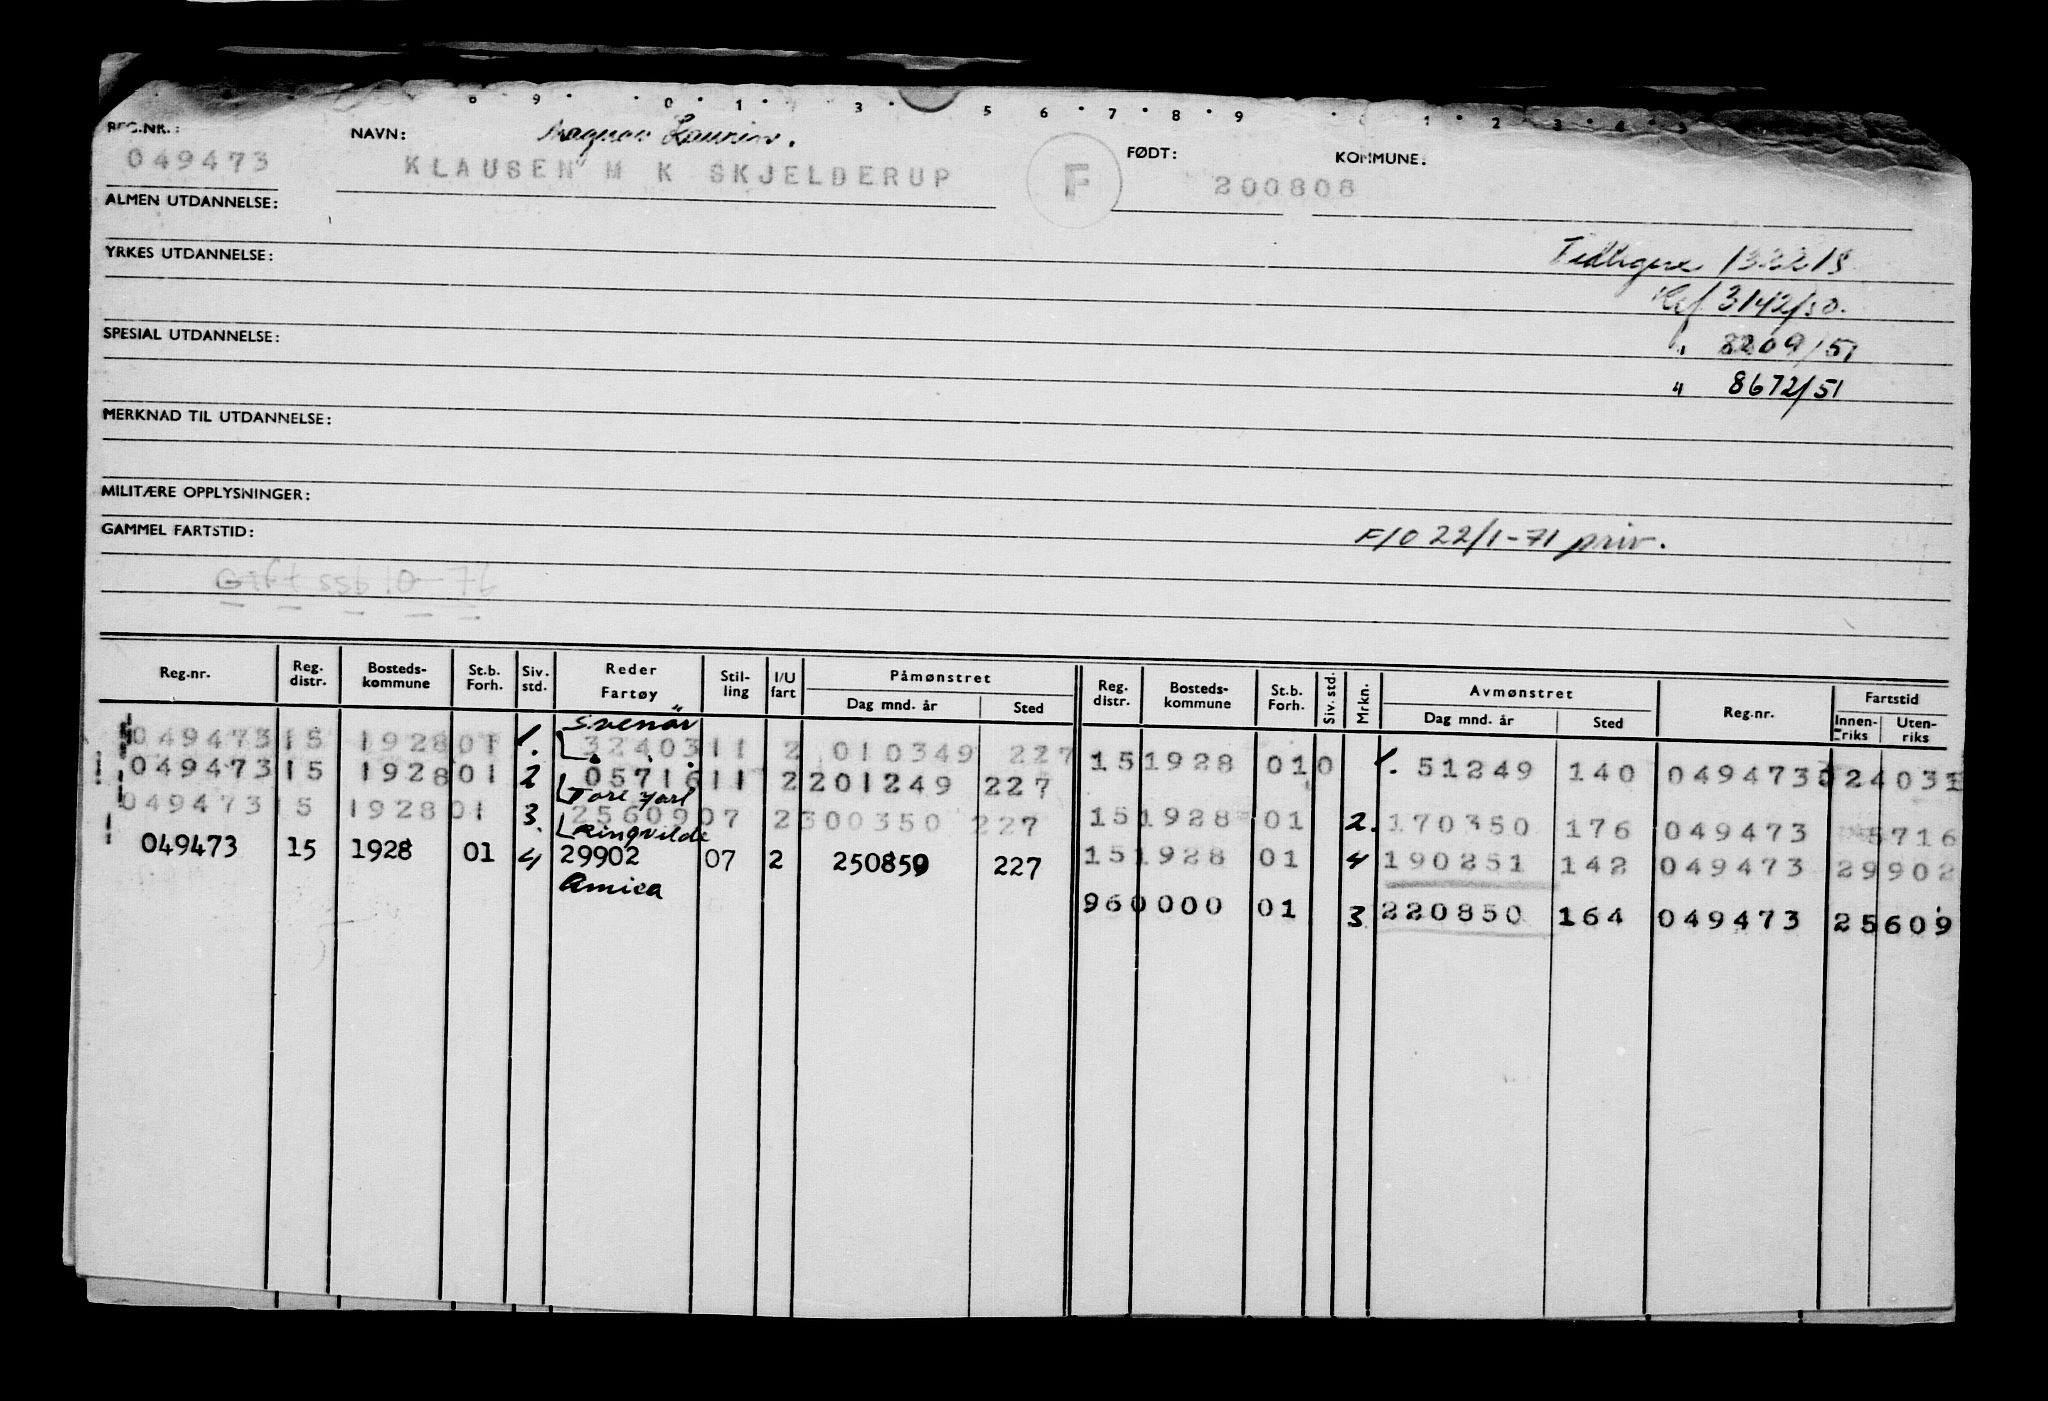 8 9 · · 0 · 1 · 3 · 5 6 · 7 · 8 · 9 · 1 · 2 · 3 · 4 · 5
REG.NR.: NAVN: Magnar Laurin. FØDT: KOMMUNE:
049473 KLAUSEN M K SKJELDERUP F 200808
ALMEN UTDANNELSE:
YRKES UTDANNELSE: Tidligere 132218
Ref 3142/50.
SPESIAL UTDANNELSE: " 2209/51
" 8672/51
MERKNAD TIL UTDANNELSE:
MILITÆRE OPPLYSNINGER:
GAMMEL FARTSTID: F/O 22/1-71 priv.
Gift ssb 10-76
Reg.nr. Reg. distr. Bosteds-kommune St.b. Forh. Siv. std. Reder Fartøy Stil-ling I/U fart Påmønstret Dag mnd. år Sted Reg. distr. Bosteds-kommune St.b. Forh. Siv. std. Mrkn. Avmønstret Dag mnd. år Sted Reg.nr. Fartstid Innen-riks Uten-riks
Svenör
049473 15 1928 01 1. 32403 11 2 010349 227 15 1928 01 0 1. 51249 140 049473
049473 15 1928 01 2 05716 11 2 201249 227
Tore Jarl
049473 15 1928 01 3. 25609 07 2 300350 227 15 1928 01 2. 170350 176 049473 5716
Ringvilde
049473 15 1928 01 4 29902 07 2 250850 227 15 1928 01 4 190251 142 049473 29902
Amica
96 0000 01 3 220850 164 049473 25609